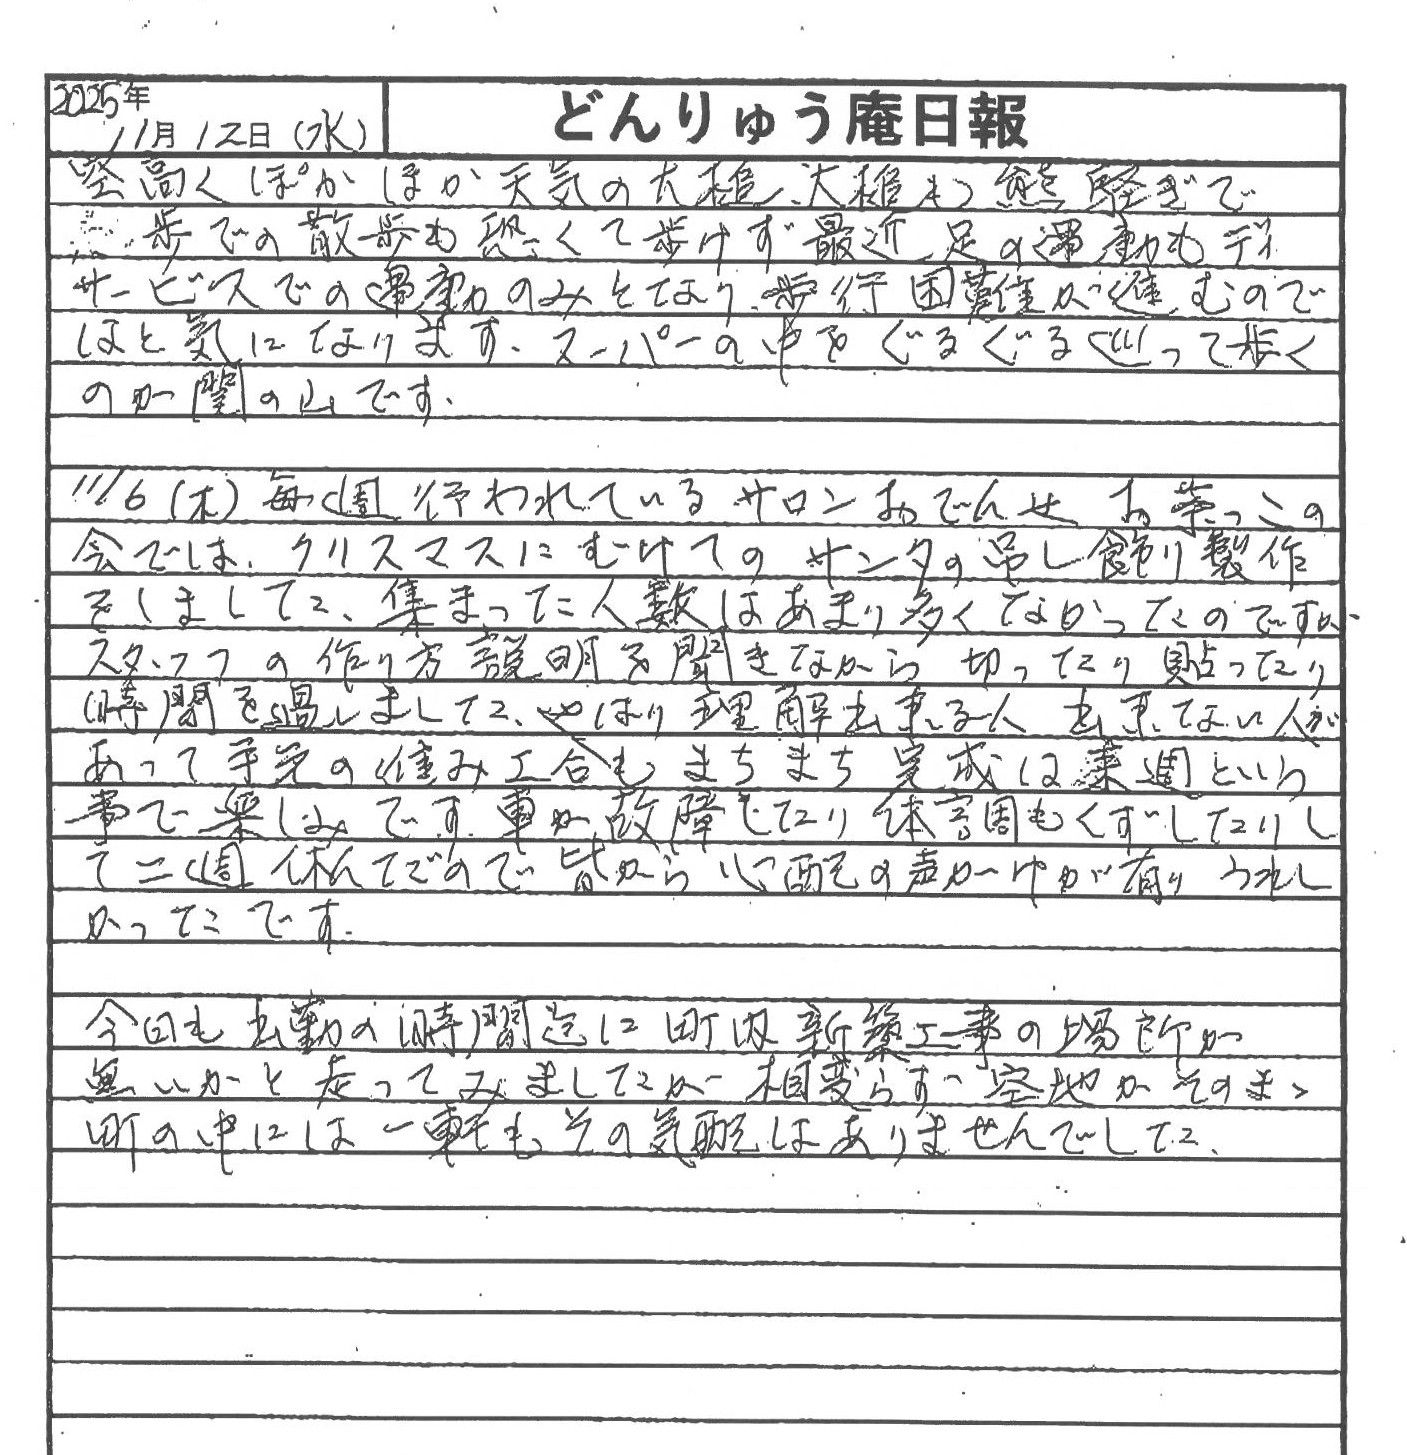 2025年
11月12日(水)
どんりゅう庵日報
空高くぽかぽか天気の大槌、大槌も熊騒ぎで
歩での散歩も恐くて歩けず最近足の運動もディ
サービスでの運動のみとなり、歩行困難が進むので
はと気になります。スーパーの中をぐるぐる巡って歩く
のが関の山です。
11/6(木)毎週行われているサロンおでんせお茶っこの
会では、クリスマスにむけてのサンタの吊し飾り製作
をしました、集まった人数はあまり多くなかったのですが
スタッフの作り方説明を聞きながら切ったり貼ったり
時間を過しました、やはり理解出来る人出来ない人が
あって手先の進み工合もまちまち完成は来週という
事で楽しみです。車が故障したり体調もくずしたりし
て二週休んだので皆から心配の声かけが有りうれし
かったです。
今日も出勤の時間迄に町内新築工事の場所が
無いかと走ってみましたが相変らず空地がそのまゝ
町の中には一軒もその気配はありませんでした、